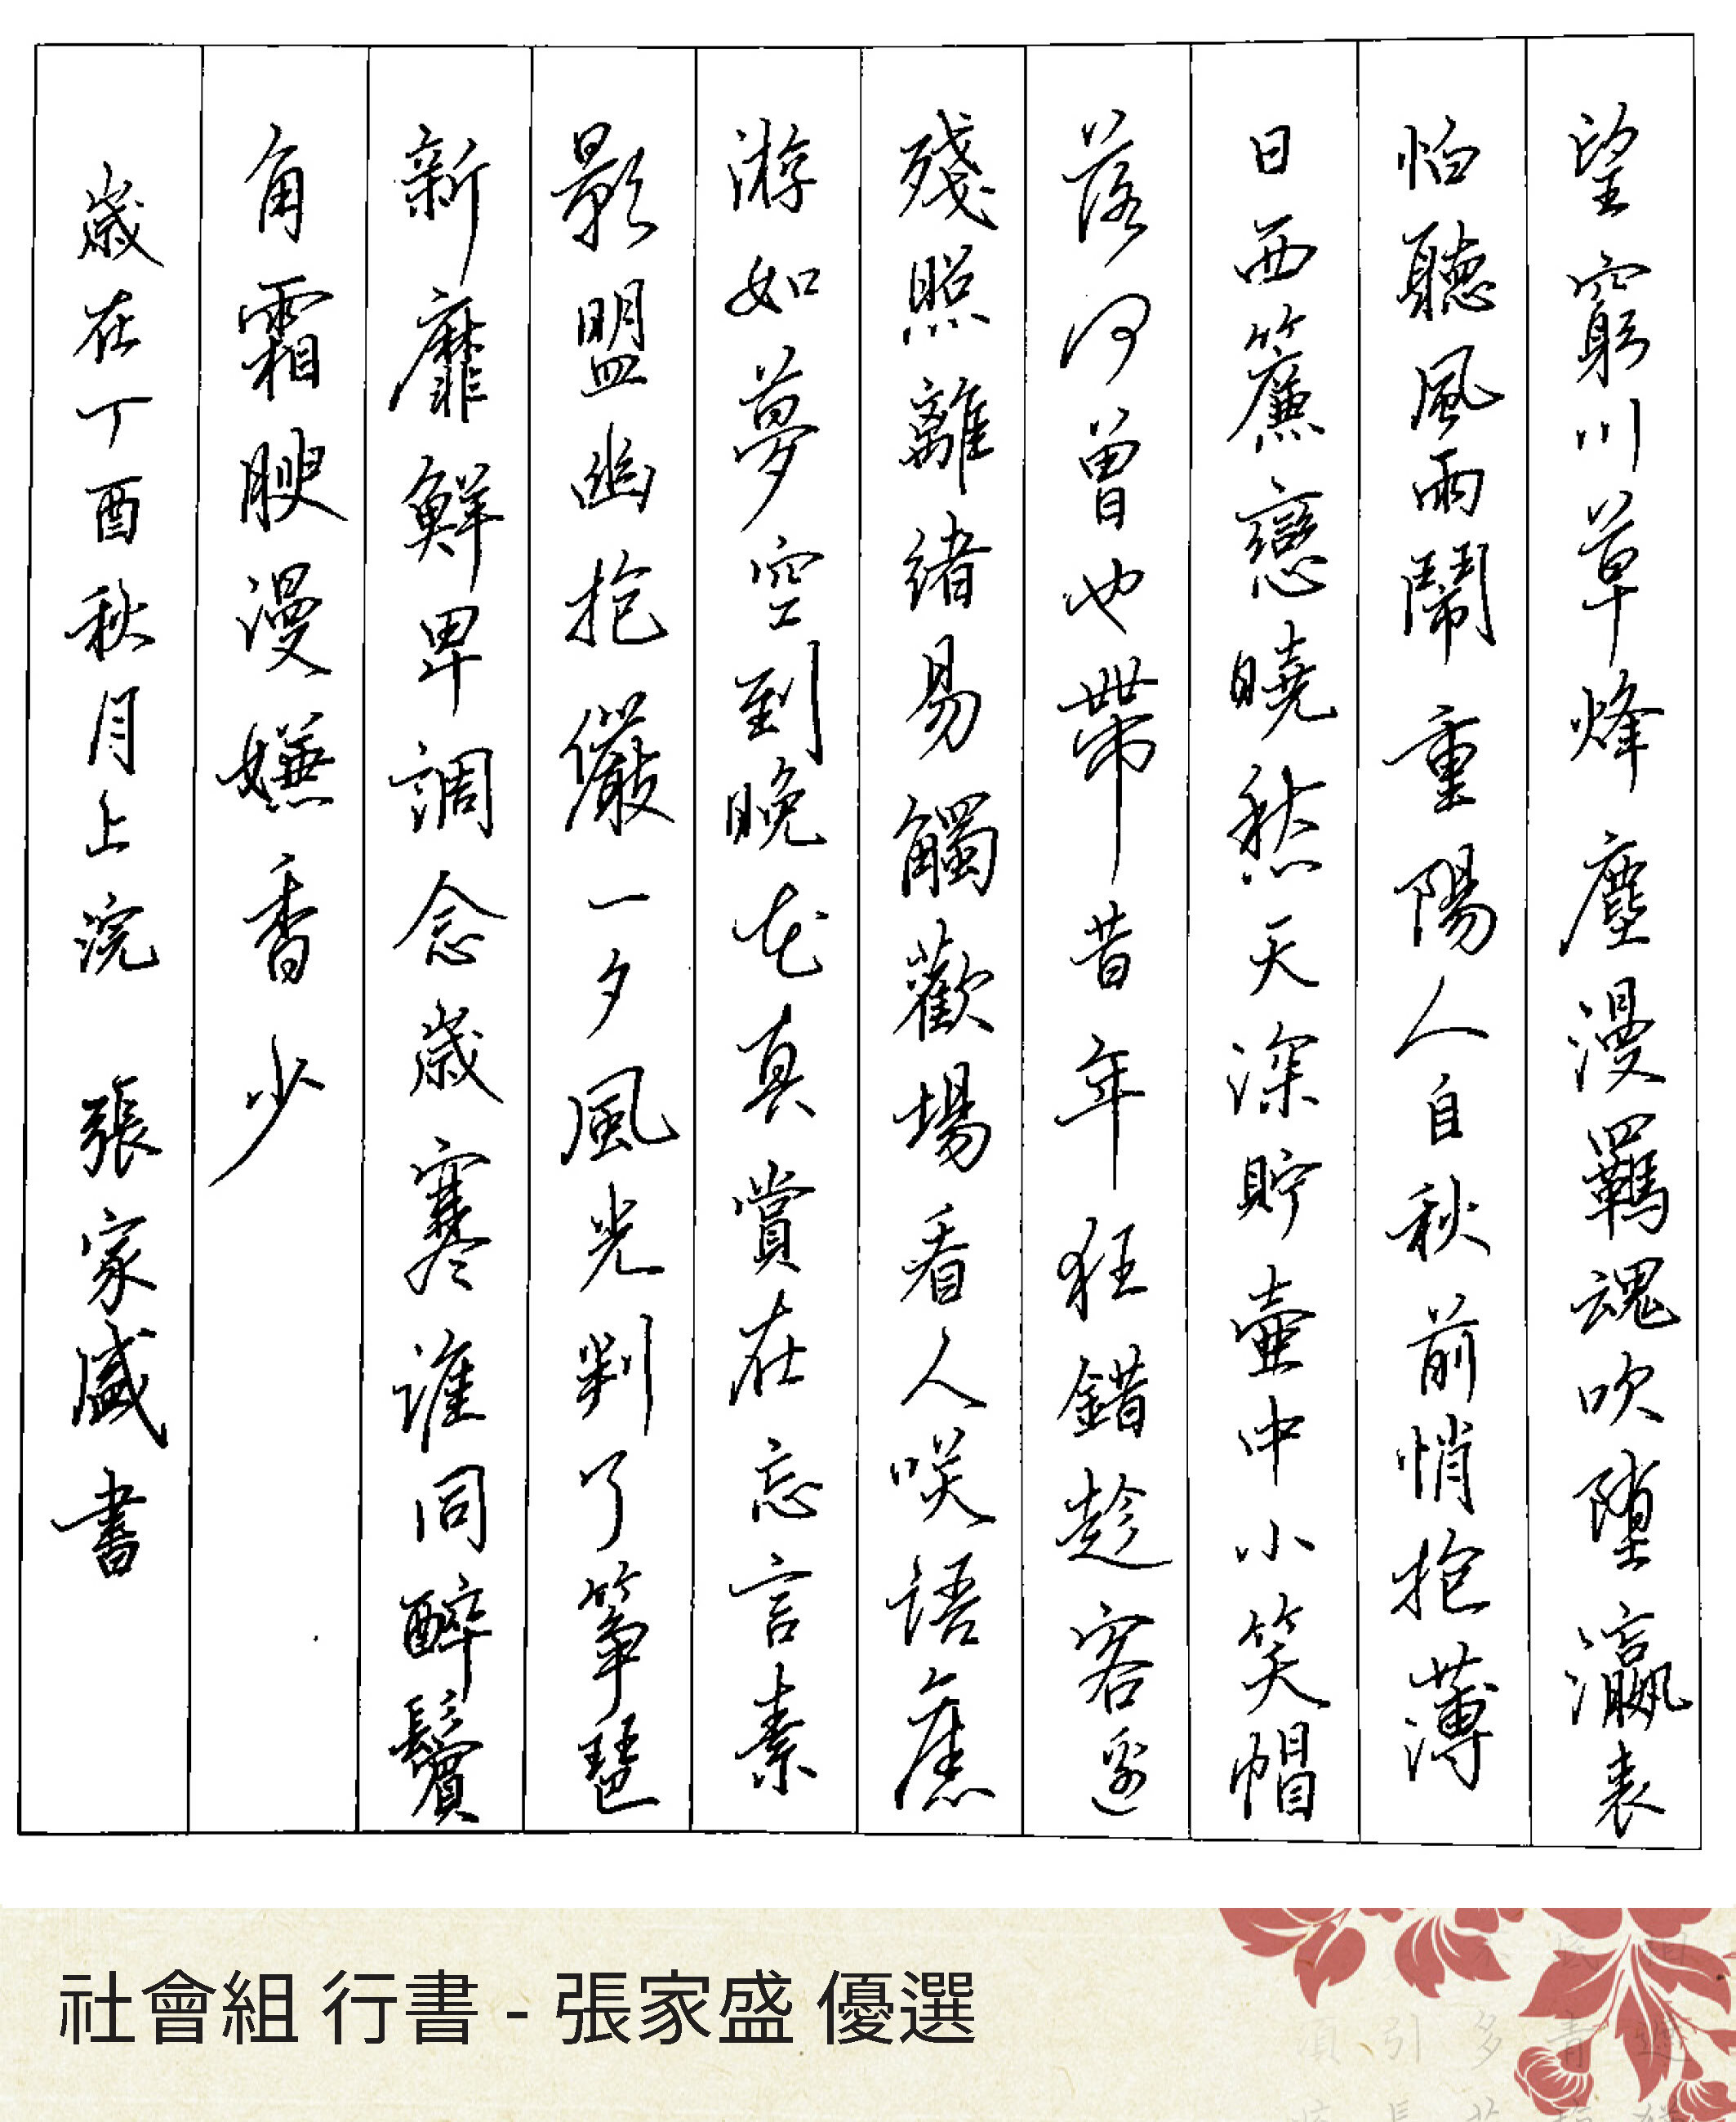 望窮川草烽塵漫羈魂吹墮瀛表
怕聽風雨鬧重陽人自秋前悄抱薄
日西簾戀曉愁天深貯壷中小笑帽
落何曾也帶昔年狂錯趁客邊
殘照離緒易觸歡場看人咲語舊
游如夢空到晚花真賞在忘言素
影盟幽抱儼一夕風光判了箏琶
新靡鮮卑調念歲寒誰同醉鬢
角霜腴漫嫌香少
歲在丁酉秋月上浣 張家盛書
社會組 行書 - 張家盛 優選